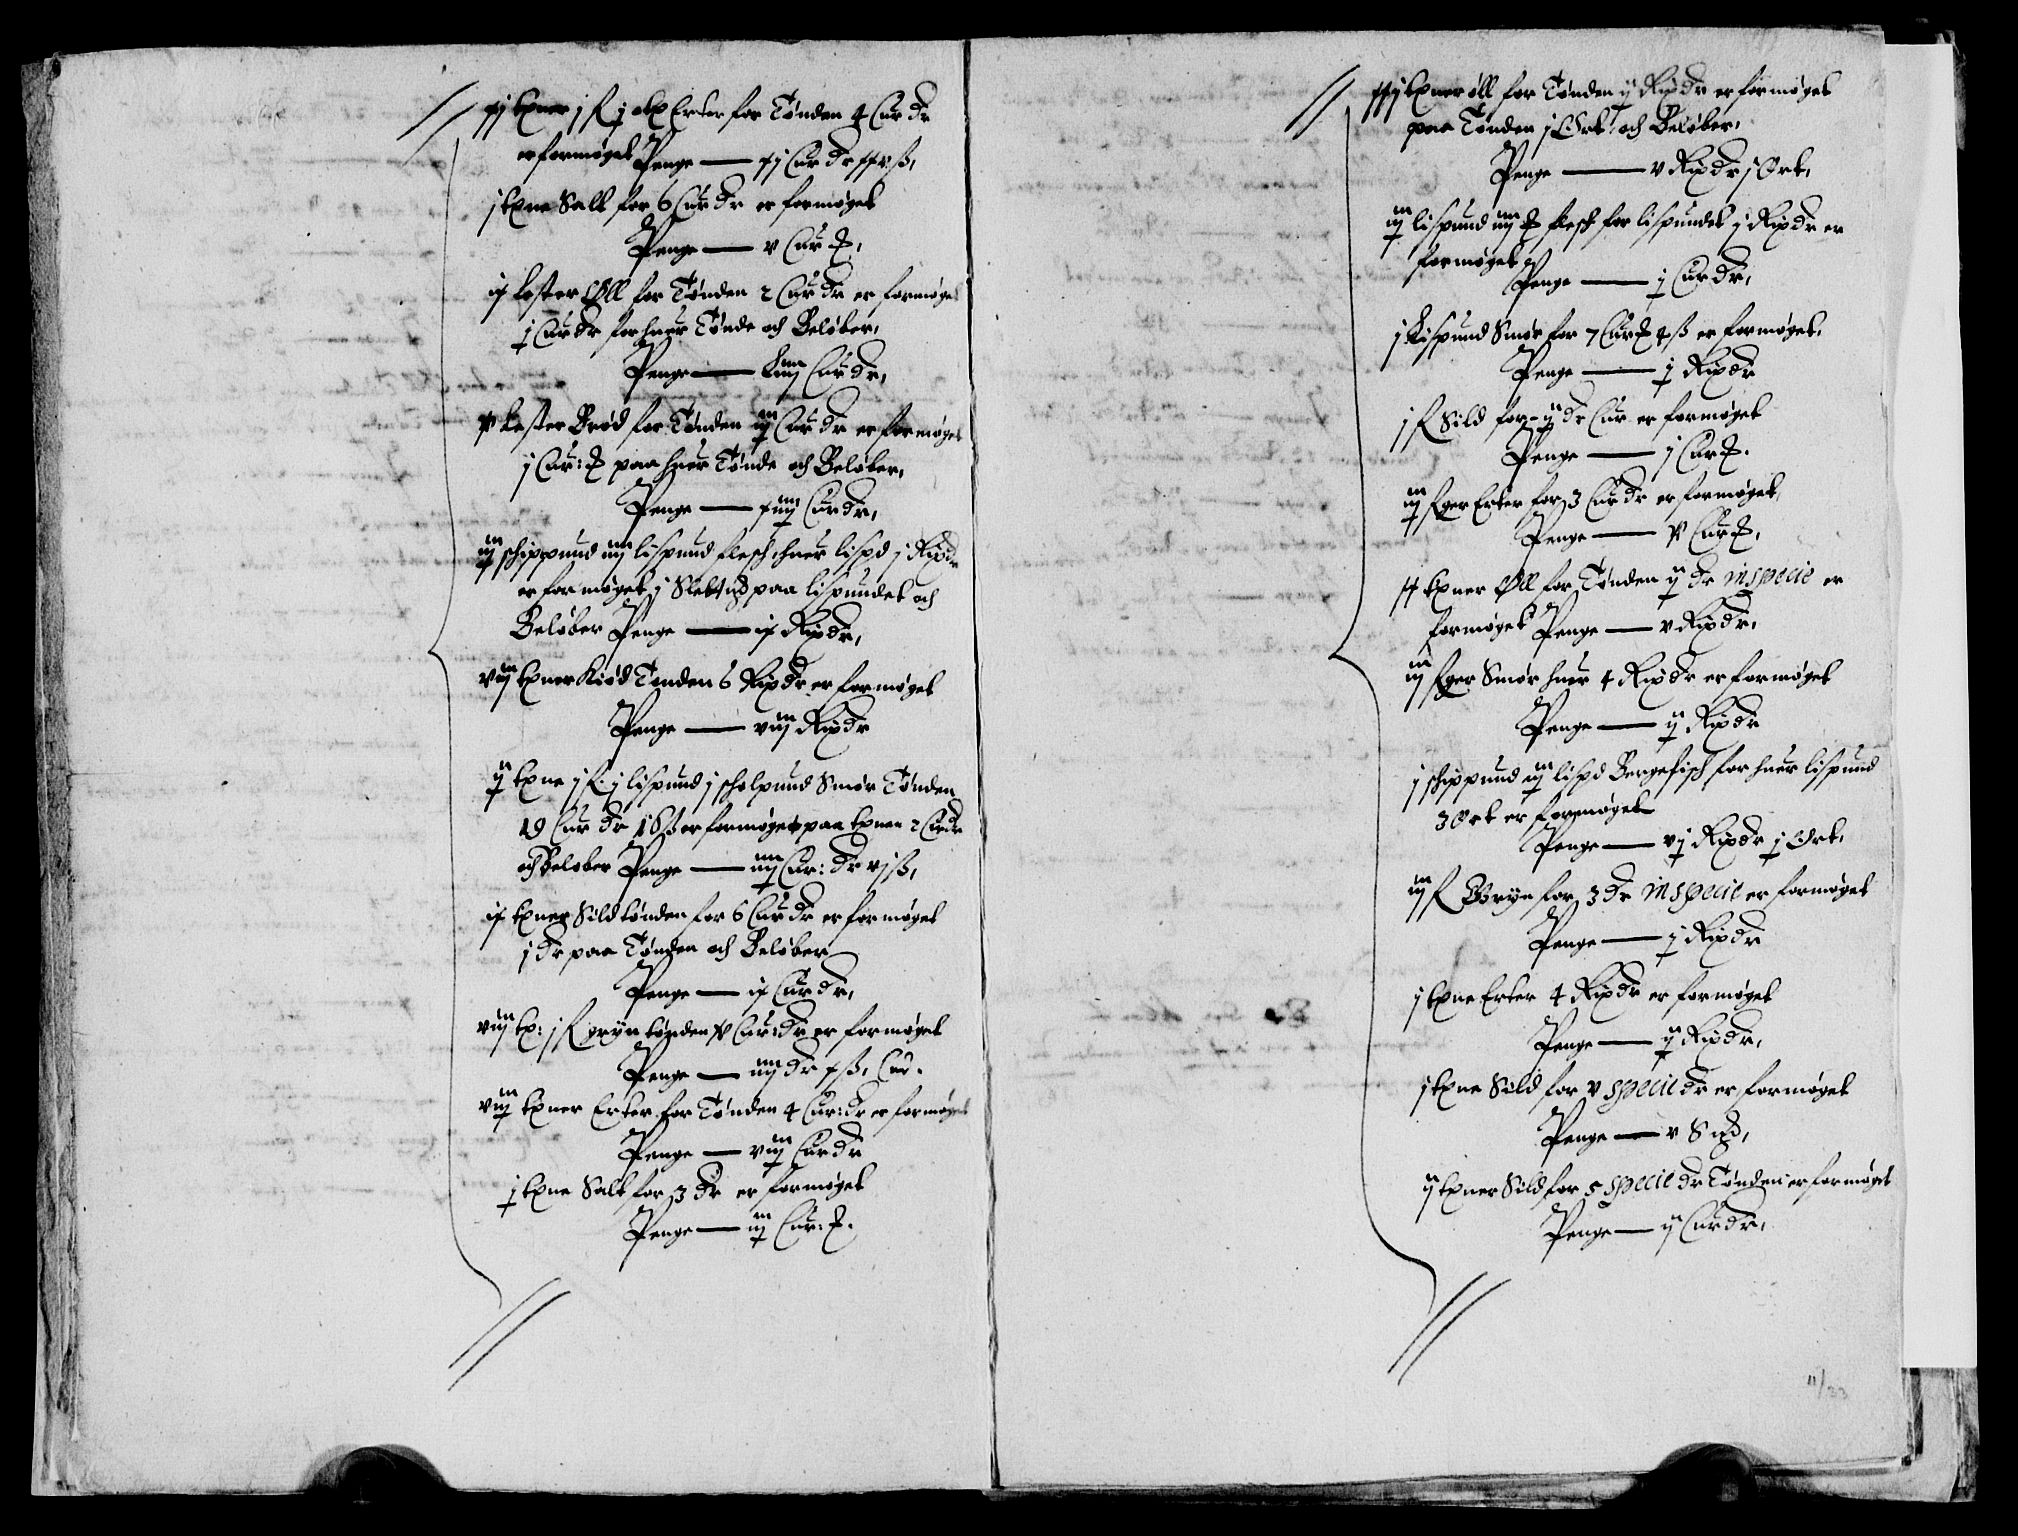 xj tønner j f. j otp Erter for Tønden 4 Cur dr
er formøget Penge — xj Cur dr xxv ß,
j tønne Salt for 6 Cur dr er formøget
Penge — v Cur dr,
ix Lester Øll for Tønden 2 Cur dr er formøget
j Cur dr for huer Tønde och Beløber,
Penge — Cur dr,
Lester Brød for Tønden iij Cur dr er formøget
j Cur: dr paa huer Tønde och Beløber,
Penge — Cur dr,
iij schippund iiij lispund flesch huer lispd j Rixdr
er formøget j Slettdr paa lispundet och
Beløber Penge — ix Rixdr,
viij tønner Kiød Tønden 6 Rixdr er formøget
Penge — viij Rixdr
ij tønne j f. j lispund j scholpund Smør Tønden
19 Cur dr 16 ß er formøget paa tønen 2 Curdr
och Beløber Penge — iiij Cur: dr vj ß,
ix tøner Sild tønden for 6 Cur dr er formøget
j dr paa Tønden och Beløber
Penge — ix Cur dr,
viij tø: j f gryn tønden Cur: dr er formøget
Penge — iiij dr x ß, Cur.
viij tønner Erter for Tønden 4 Cur: dr er formøget
Penge — viij Cur dr
j tønne Salt for 3 dr er formøget
Penge — iij Cur: dr.
xxj tønner øll for Tønden ij Rixdr er formøget
paa Tønden j Ort och Beløber,
Penge — v Rixdr j Ort,
iij lispund iiij flesch for lispundet j Rixdr er
formøget
Penge — j Cur dr,
j Lispund Smør for 7 Cur dr 4 ß er formøget,
Penge — j Rixdr
j f Sild for ij dr Cur er formøget
Penge — j Cur dr.
iij fger Erter for 3 Cur dr er formøget,
Penge — Cur dr,
xx tønner Øll for Tønden ij dr inspecie er
formøget Penge — v Rixdr,
iij fger Smør huer 4 Rixdr er formøget
Penge — ij Rixdr
j schippund iij lispd Bergefisch for huer lispund
3 Ort er formøget
Penge — vj Rixdr j Ort,
iij f Gryn for 3 dr inspecie er formøget
Penge — j Rixdr
j tønne Erter 4 Rixdr er formøget
Penge — ij Rixdr,
j tønne Sild for v specie dr er formøget
Penge — v
ij tønner Sild for 5 specie dr Tønden er formøget
Penge — ij Cur dr,
11/33